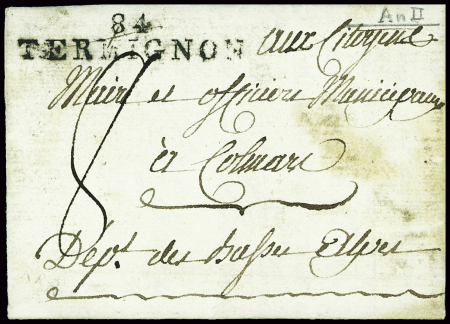 An II
84
TERMIGNON
aux Citoyens
Maire et officiers Municipaux
à Colmars
Dép.t des basses Alpes
8